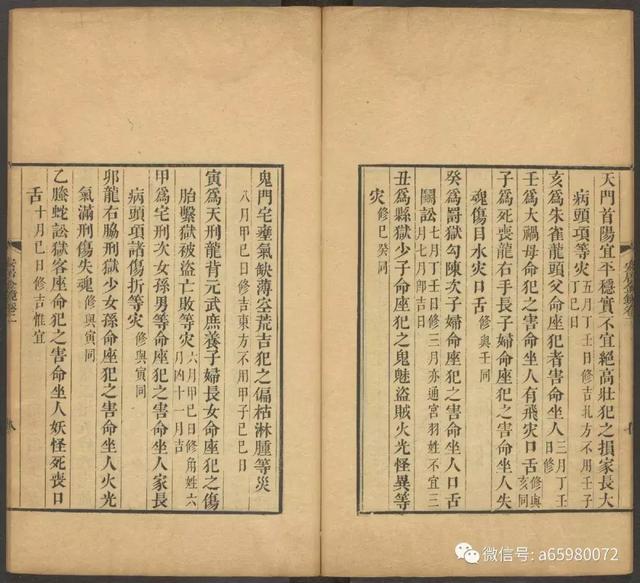 天門首陽宜平穩實不宜絕高壯犯之損家長大
病頭項等灾五月丁壬日修吉北方不用壬子丁巳日
亥爲朱雀龍頭父命座犯者害命坐人三月丁壬日修
壬爲大禍母命犯之害命坐人有飛灾口舌修與亥同
子爲死喪龍右手長子婦命座犯之害命坐人失
魂傷目水灾口舌修與壬同
癸爲罰獄勾陳次子婦命座犯之害命坐人口舌
鬭訟七月丁壬日修三月亦通宮羽姓不宜三月七月郎吉日
丑爲縣獄少子命座犯之鬼魅盜賊火光怪異等
灾修巳癸同
鬼門宅壅氣缺薄空荒吉犯之偏枯淋腫等災
八月甲巳日修吉東方不用甲子巳巳日
寅爲天刑龍背元武庶養子婦長女命座犯之傷
胎繫獄被盜亡敗等灾六月甲巳日修角姓六月四十一月吉
甲爲宅刑次女孫男等命座犯之害命坐人家長
病頭項諸傷折等灾修與寅同
卯龍右脇刑獄少女孫命座犯之害命坐人火光
氣滿刑傷失魂修與寅同
乙螣蛇訟獄客座命犯之害命坐人妖怪死喪口
舌十月巳日修吉惟宜
微信号: a65980072